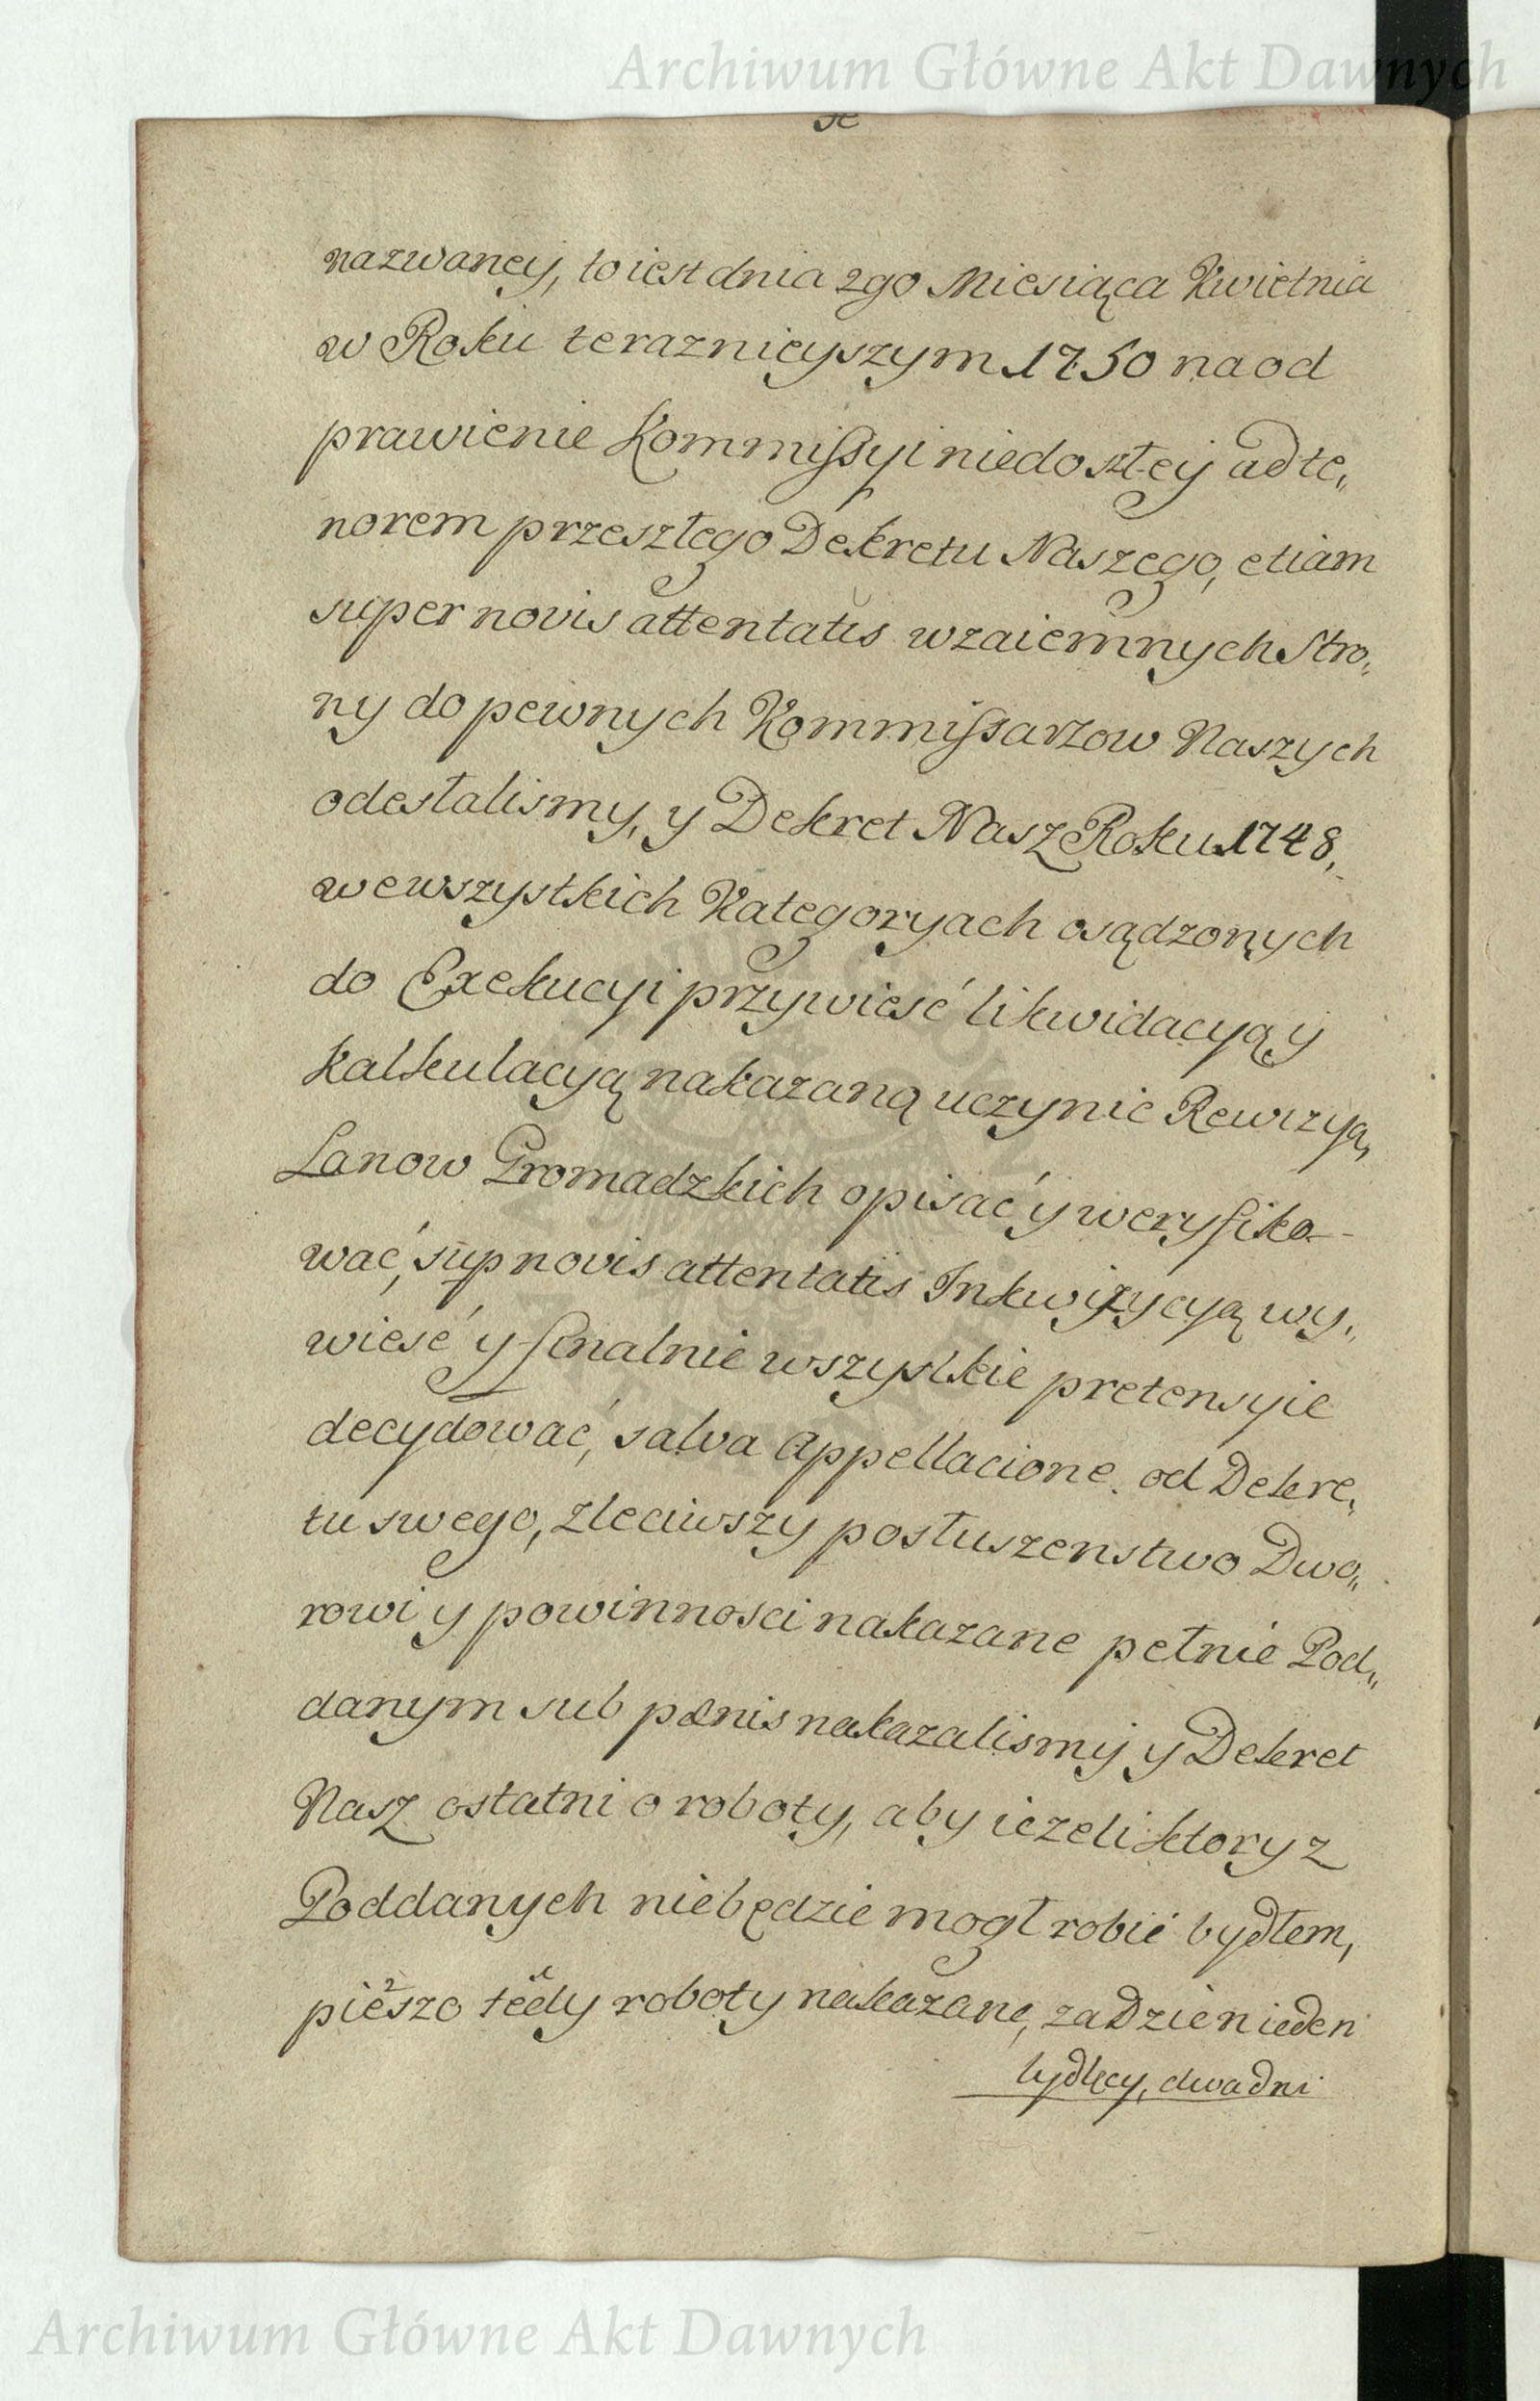 Archiwum Główne Akt Dawnych
nazwaney, to iest dnia 2go Miesiąca Kwietnia
w Roku teraznieyszym 1750 na od
prawienie Kommissyi niedoszłey ad te„
norem przeszłego Dekretu Naszego, etiam
super novis attentatis wzaiemnych Stro„
ny do pewnych Kommissarzow Naszych
odesłalismy, y Dekret Nasz Roku 1748,
we wszystkich Kategoryach osądzonych
do Exekucyi przywiesć likwidacyą y
kalkulacyą nakazaną uczynic Rewizyą,
Lanow Gromadzkich opisać y weryfiko-
wać, sup novis attentatis Inkwizycyą wy„
wiesć y finalnie wszystkie pretensyie
decydować, salva Appellacione od Dekre„
tu swego, zleciwszy posłuszenstwo Dwo„
rowi y powinnosci nakazane pełnie Pod„
danym sub pœnis nakazalismy y Dekret
Nasz ostatni o roboty, aby iezeli ktory z
Poddanych niebędzie mogł robić bydłem,
pieszo tedy roboty nakazane, za Dzien ieden
bydlęcy, dwa dni
Archiwum Główne Akt Dawnych